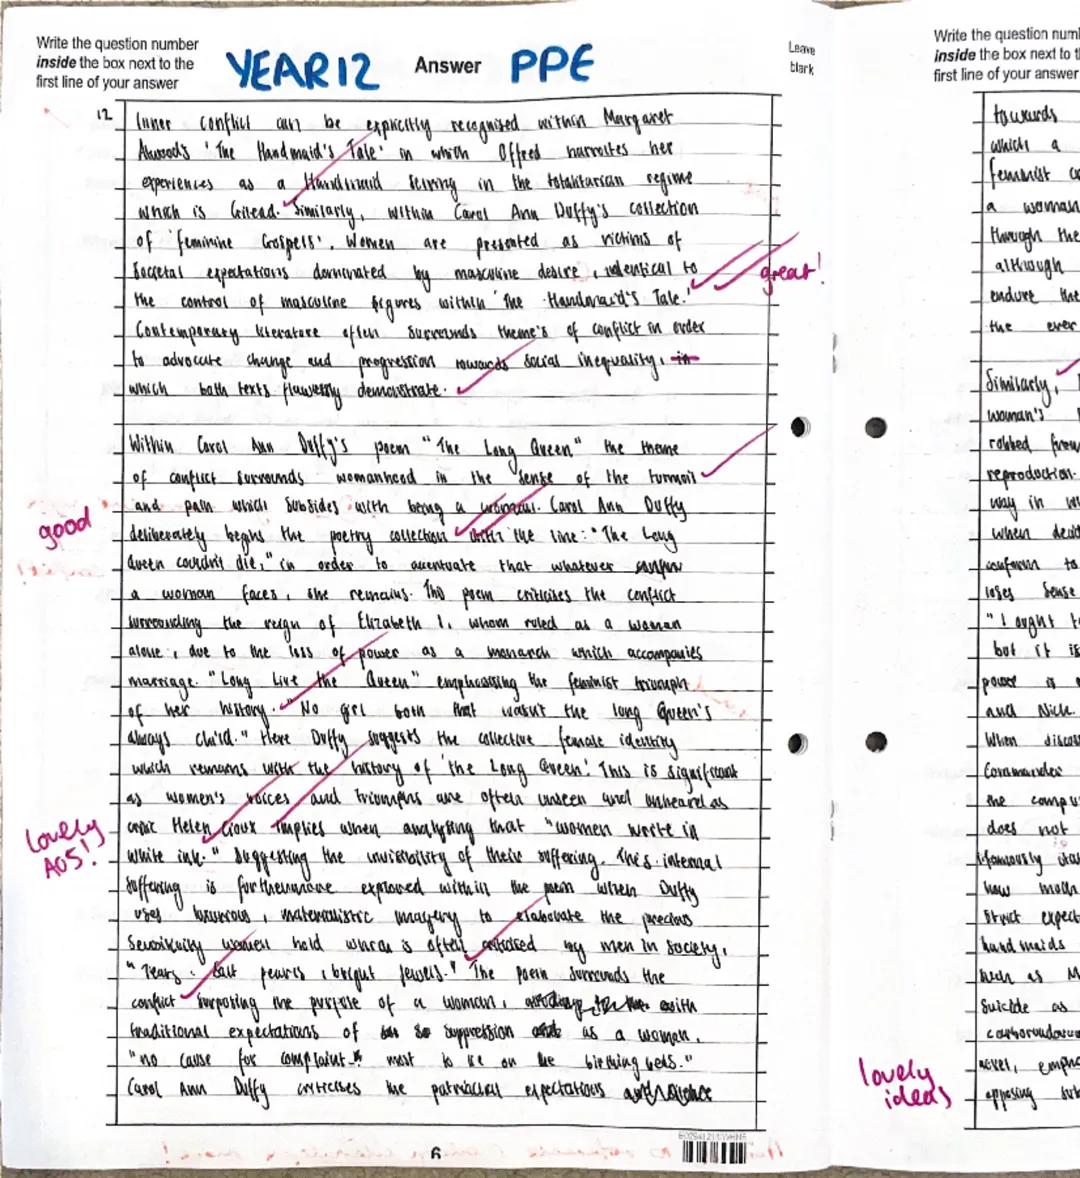 Write the question number
inside the box next to the
first line of your answer
YEAR 12
Answer
PPE
Leave
blank
12
Inner conflict can be explicitly recognised within Margaret
Atwood's 'The Handmaid's Tale' in which Offred narrates her
experiences as a Handmaid serving in the totalitarian regime
which is Gilead. Similarly, within Carol Ann Duffy's collection
of 'feminine Gospels', women are presented as victims of
societal expectations dominated by masculine desire, identical to
the control of masculine figures within 'The Handmaid's Tale.'
great!
Contemporary literature often surrounds theme's of conflict in order
to advocate change and progression towards social inequality, in
which both texts flawlessly demonstrate.
Within Carol Ann Duffy's poem "The Long Queen" the theme
of conflict surrounds womanhood in the sense of the turmoil
and pain which subsides with being a woman. Carol Ann Duffy
good
deliberately begins the poetry collection with the line: "The Long
Queen couldn't die," in order to accentuate that whatever
a woman faces, she remains. This poem criticises the conflict
surrounding the reign of Elizabeth I, whom ruled as a woman
alone, due to the loss of power as a monarch which accompanies
marriage. "Long Live the Queen" emphasising the feminist triumph
of her history. "No girl born that wasn't the long Queen's
always child." Here Duffy suggests the collective female identity
which remains with the history of 'the Long Queen'. This is significant
as women's voices and triumphs are often unseen and unheard as
lovely
AO5!
critic Helen Cioux implies when analysing that "women write in
white ink." suggesting the invisibility of their suffering. This internal
suffering is furthermore explored within the poem when Duffy
uses luxurious, materialistic imagery to elaborate the precious
sensitivity women hold which is often criticised by men in society,
"Tears: salt pearls, bright jewels." The poem surrounds the
conflict surposing the purpose of a woman, with
traditional expectations of suppression as a woman.
"no cause for complaint" most to lie on the birthing beds."
Carol Ann Duffy criticises the patriarchal expectations
6
Write the question num
inside the box next to t
first line of your answer
towards
which a
feminist
a woman
through the
although
endure the
the ever
Similarly,
woman's
robbed from
reproduction.
way in
when
conform to
loses sense
"I ought t
but it is
power is
and Nick.
When discus
Commander
the compu
does not
how much
strict expect
handmaids
such as M
Suicide as
novel, empha
opposing sub
lovely
ideas